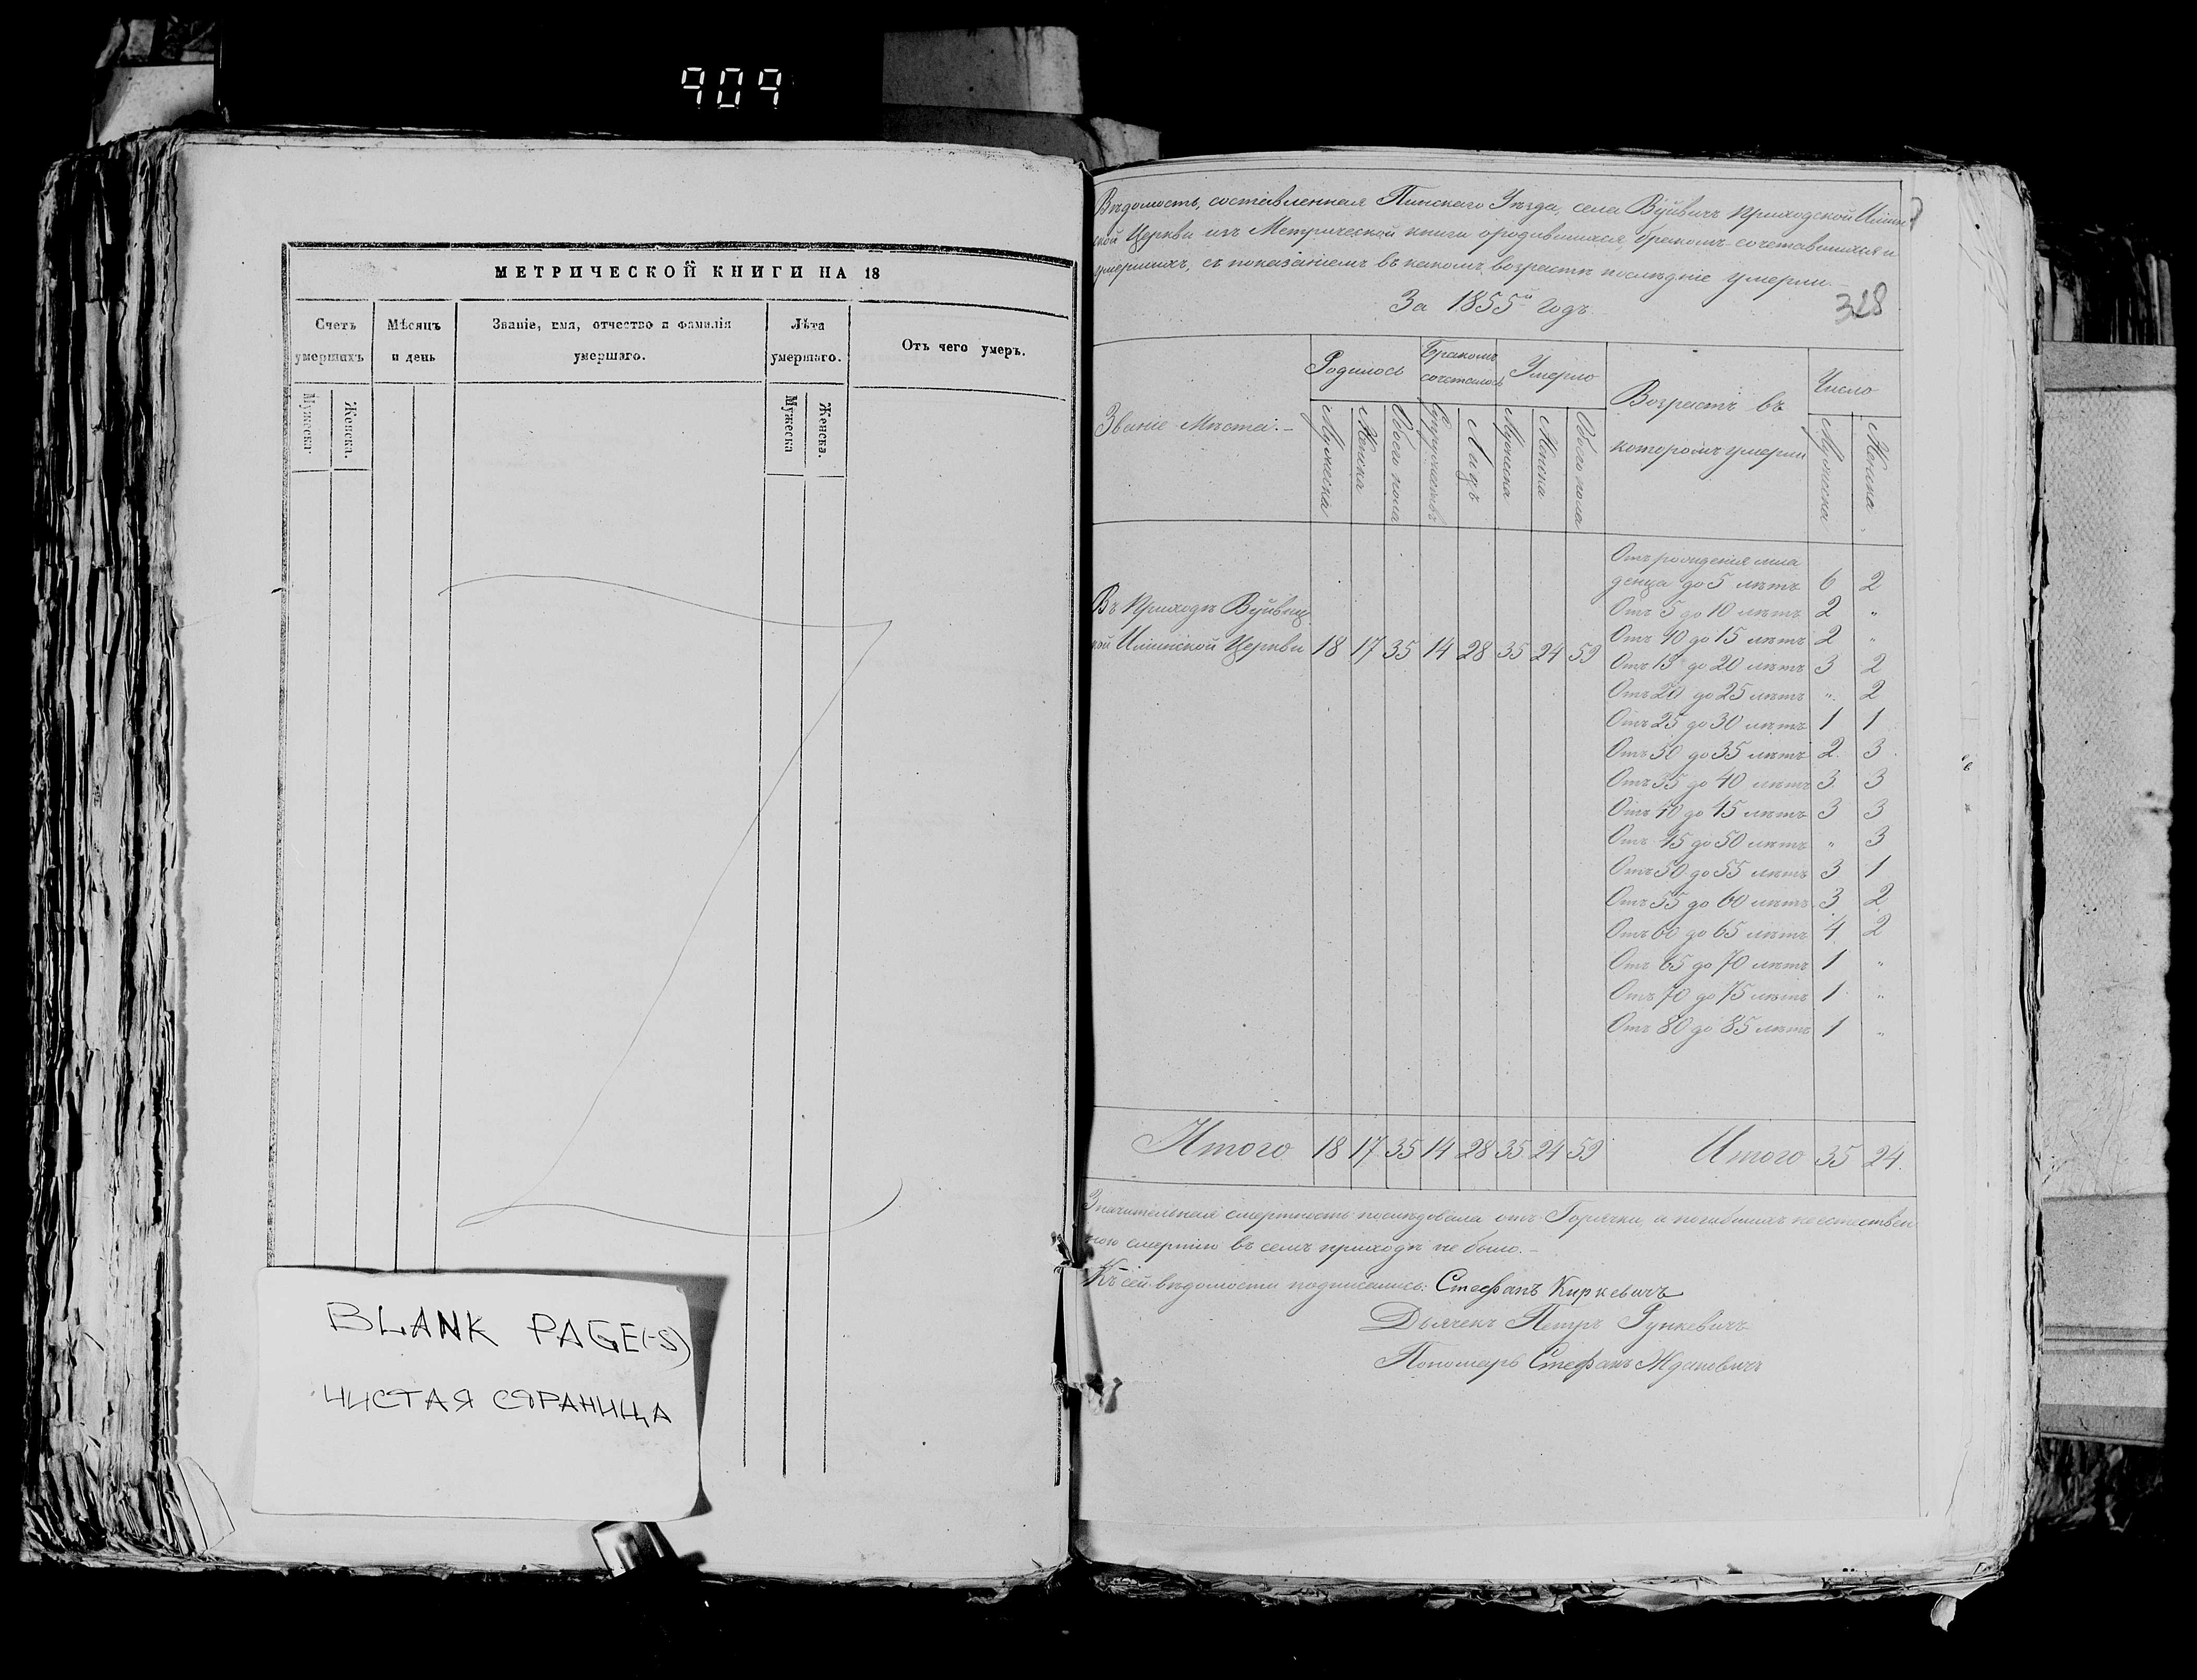 909
МЕТРИЧЕСКОЙ КНИГИ НА 18
Счетъ умершихъ
Мѣсяцъ и день
Званіе, имя, отчество и фамилія умершаго.
Лѣта умершаго.
Отъ чего умеръ.
Мужеска
Женска.
Мужеска
Женска.
BLANK PAGE(-S)
ЧИСТАЯ СТРАНИЦА
Вѣдомость, составленная Пинскаго Уѣзда, села Вуйвичъ приходской Ильин
ской Церкви изъ Метрической книги о родившихся, бракомъ сочетавшихся и
умершихъ, съ показаніемъ въ какомъ возрастѣ послѣдніе умерли.—
За 1855й Годъ.
328
Званіе Мѣста.—
Родилось
Бракомъ сочеталось
Умерло
Возрастъ въ которомъ умерли
Число
Мужеска
Женска
Обоего пола
Супружествъ
Лицъ
Мужеска
Женска
Обоего пола
Мужеска
Женска
Отъ рожденія мла
денца до 5 лѣтъ 6 2
Отъ 5 до 10 лѣтъ 2 "
Отъ 10 до 15 лѣтъ 2 "
Въ Приходѣ Вуйвиц
кой Ильинской Церкви 18 17 35 14 28 35 24 59
Отъ 15 до 20 лѣтъ 3 2
Отъ 20 до 25 лѣтъ " 2
Отъ 25 до 30 лѣтъ 1 1
Отъ 30 до 35 лѣтъ 2 3
Отъ 35 до 40 лѣтъ 3 3
Отъ 40 до 45 лѣтъ 3 3
Отъ 45 до 50 лѣтъ " 3
Отъ 50 до 55 лѣтъ 3 1
Отъ 55 до 60 лѣтъ 3 2
Отъ 60 до 65 лѣтъ 4 2
Отъ 65 до 70 лѣтъ 1 "
Отъ 70 до 75 лѣтъ 1 "
Отъ 80 до 85 лѣтъ 1 "
Итого 18 17 35 14 28 35 24 59 Итого 35 24.
Значительная смертность послѣдовала отъ Горячки, а погибшихъ неестествен
ною смертію въ семъ приходѣ не было.—
Къ сей вѣдомости подписались: Стефанъ Киркевичъ
Дьячекъ Петръ Рункевичъ
Пономарь Стефанъ Ждановичъ